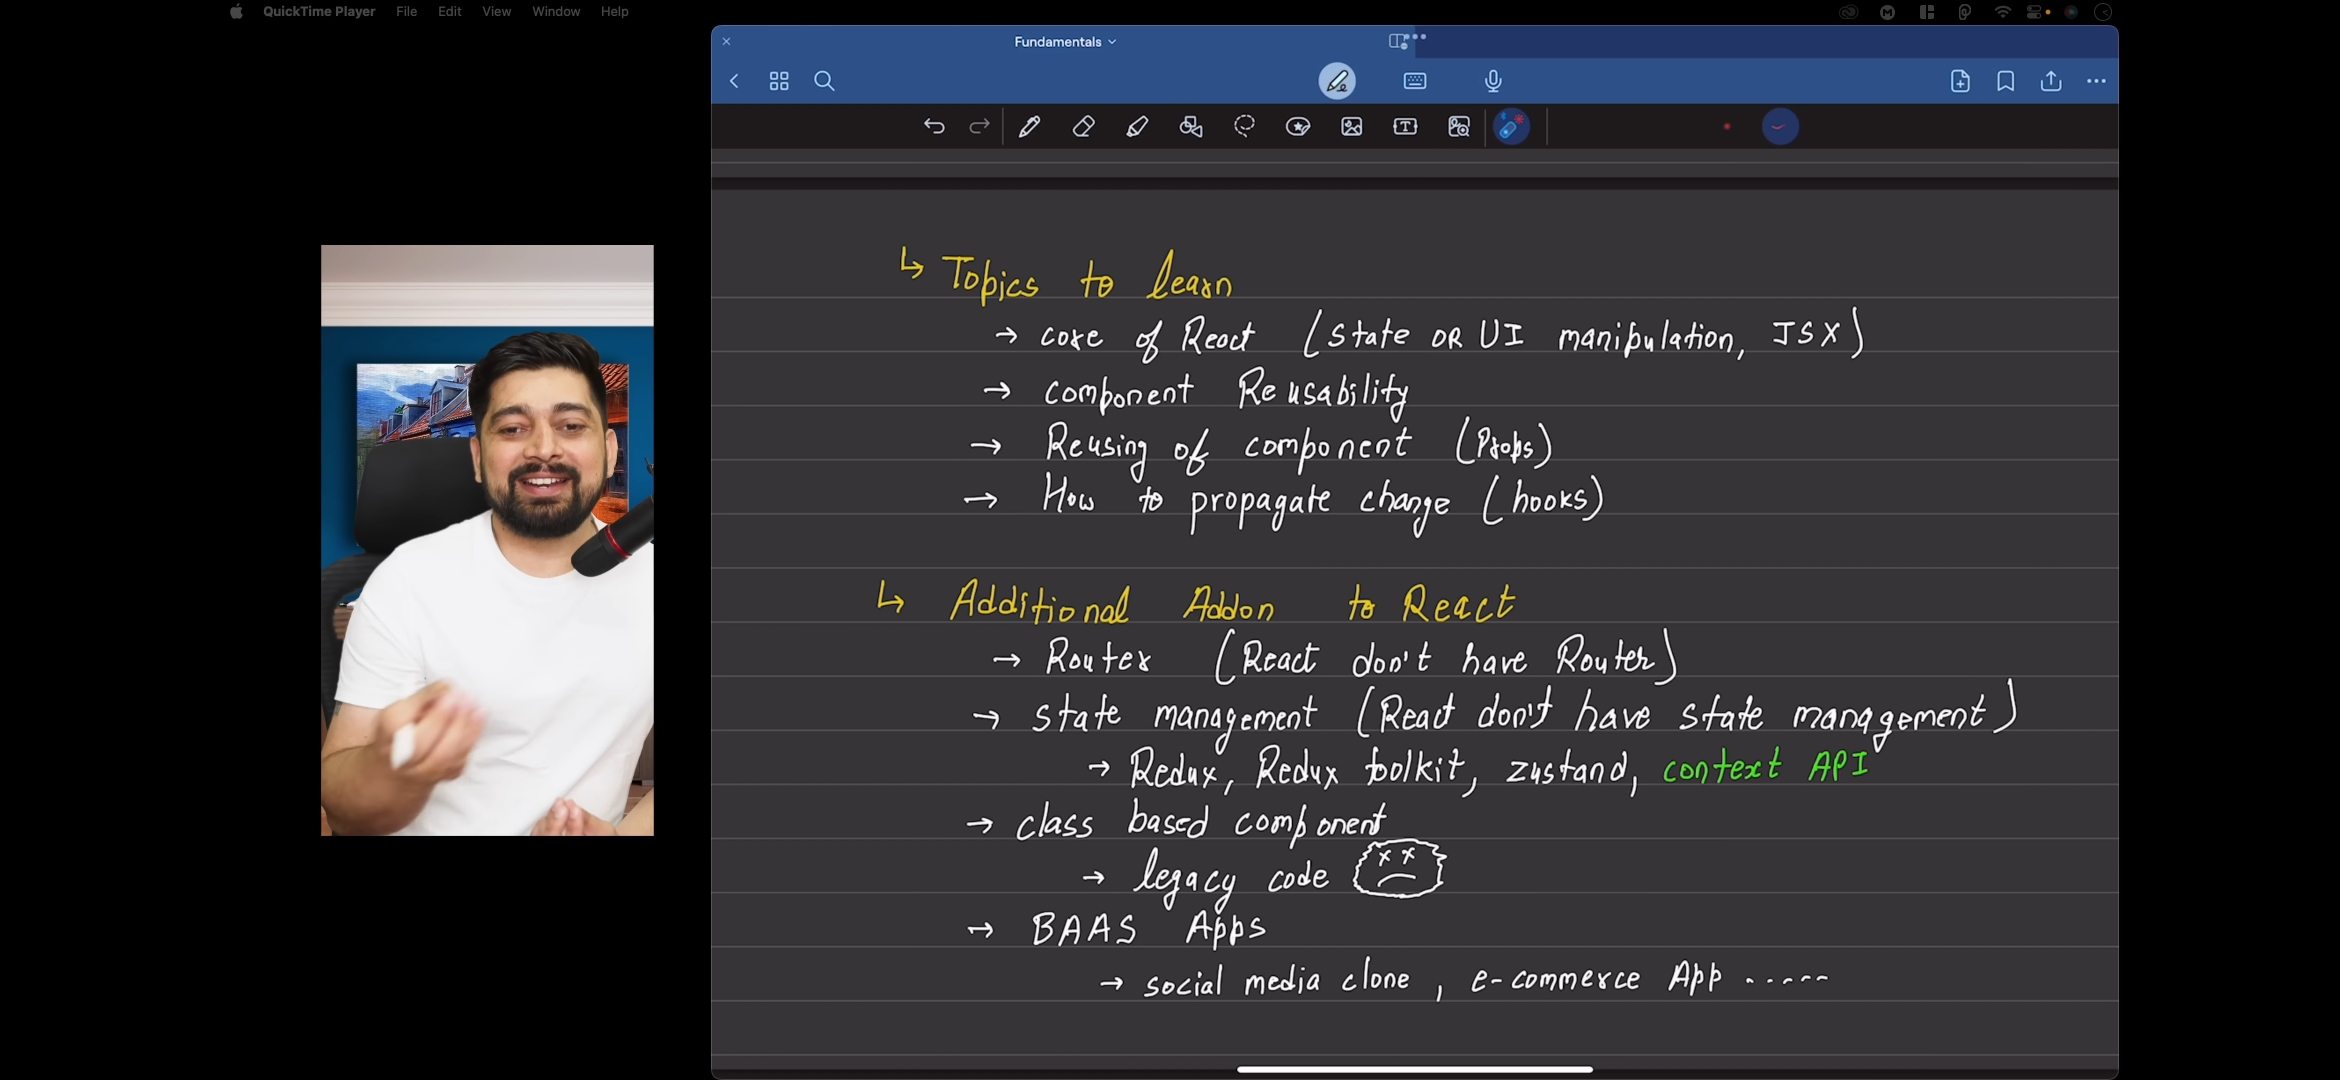 QuickTime Player File Edit View Window Help
Fundamentals
↳ Topics to learn
→ core of React (state OR UI manipulation, JSX)
→ component Reusability
→ Reusing of component (Props)
→ How to propagate change (hooks)
↳ Additional Addon to React
→ Router (React don't have Router)
→ state management (React don't have state management)
→ Redux, Redux toolkit, zustand, context API
→ class based component
→ legacy code
→ BAAS Apps
→ social media clone, e-commerce App .....